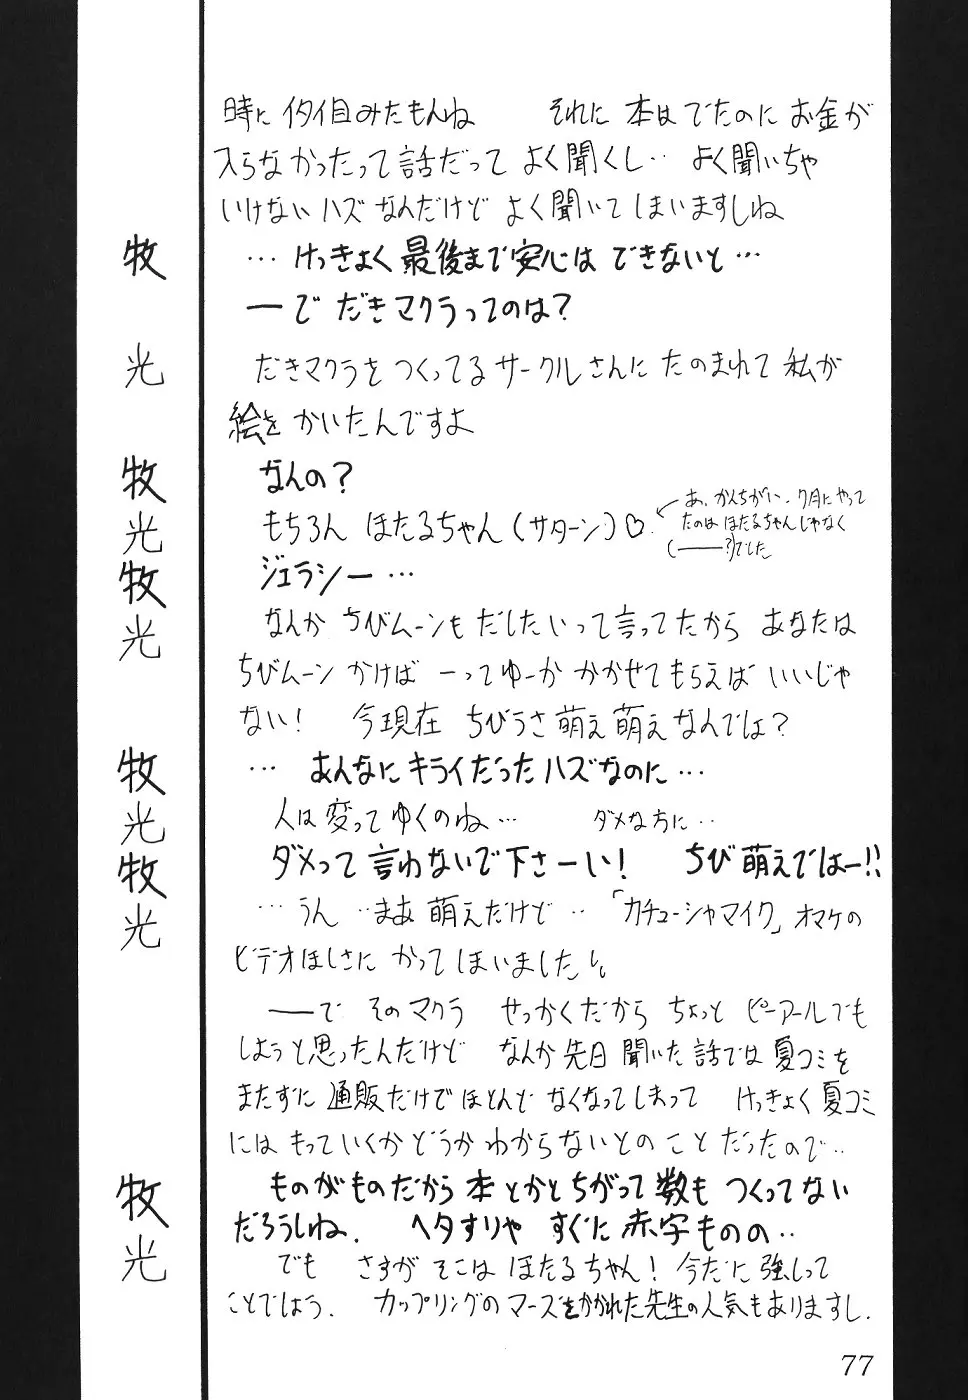 時に イタイ目みたもんね　それに 本は でたのに お金が
入らなかったって 話だって よく聞くし‥ よく聞いちゃ
いけない ハズ なんだけど よく聞いてしまいますしね
牧 …けっきょく 最後まで安心は できないと…
―で だきマクラってのは?
光 だきマクラを つくってる サークル さんに たのまれて 私が
絵を かいたんですよ
牧 なんの?
光 もちろん ほたるちゃん(サターン)♡
←あ、かんちがい、7月にやって
たのは ほたるちゃんじゃなく
(―――?)でした
牧 ジェラシー…
光 なんか ちびムーンも だしたいって言ってたから あなたは
ちびムーン かけば―ってゆーか かかせてもらえば いいじゃ
ない! 今現在 ちびうさ萌え萌えなんでしょ?
牧 … あんなに キライだったハズなのに…
光 人は変ってゆくのね… ダメな方に‥
牧 ダメって 言わないで下さーい! ちび萌えではー!!
光 …うん ‥まあ 萌えだけど‥「カチューシャマイク」オマケの
ビデオほしさに かってしまいましたし。
――で そのマクラ せっかくだから ちょっと ピーアールでも
しようと思ったんだけど なんか先日 聞いた話では 夏コミを
またずに 通販だけで ほとんど なくなってしまって けっきょく 夏コミ
には もっていくか どうか わからないとの ことだったので‥
牧 ものがものだから 本とかとちがって 数も つくってない
だろうしね. ヘタすりゃ すぐに 赤字ものの‥
光 でも さすが そこは ほたるちゃん! 今だに 強しって
ことでしょう. カップリングの マーズをかかれた先生の人気もありますし.
77